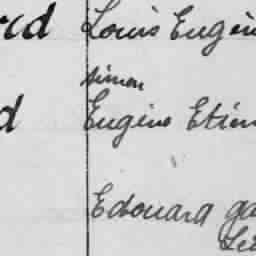 rd Louis Eugèn
Simon
d Eugène Etien
Edouard ga